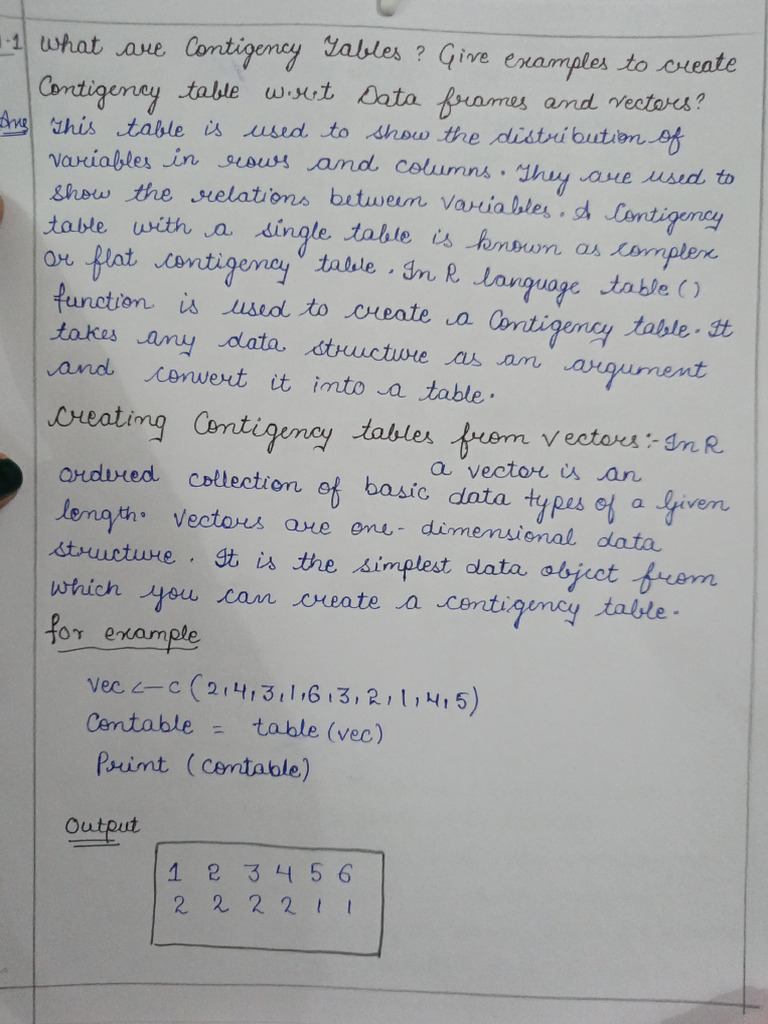 -1 What are Contigency Tables ? Give examples to create
Contigency table w.r.t Data frames and vectors?
Ans This table is used to show the distribution of
variables in rows and columns. They are used to
show the relations between variables. A Contigency
table with a single table is known as complex
or flat contigency table. In R language table ()
function is used to create a Contigency table. It
takes any data structure as an argument
and convert it into a table.
Creating Contigency tables from vectors:- In R
a vector is an
ordered collection of basic data types of a given
length. Vectors are one-dimensional data
structure. It is the simplest data object from
which you can create a contigency table.
for example
vec <- c (2,4,3,1,6,3,2,1,4,5)
Contable = table (vec)
Print (contable)
Output
1 2 3 4 5 6
2 2 2 2 1 1